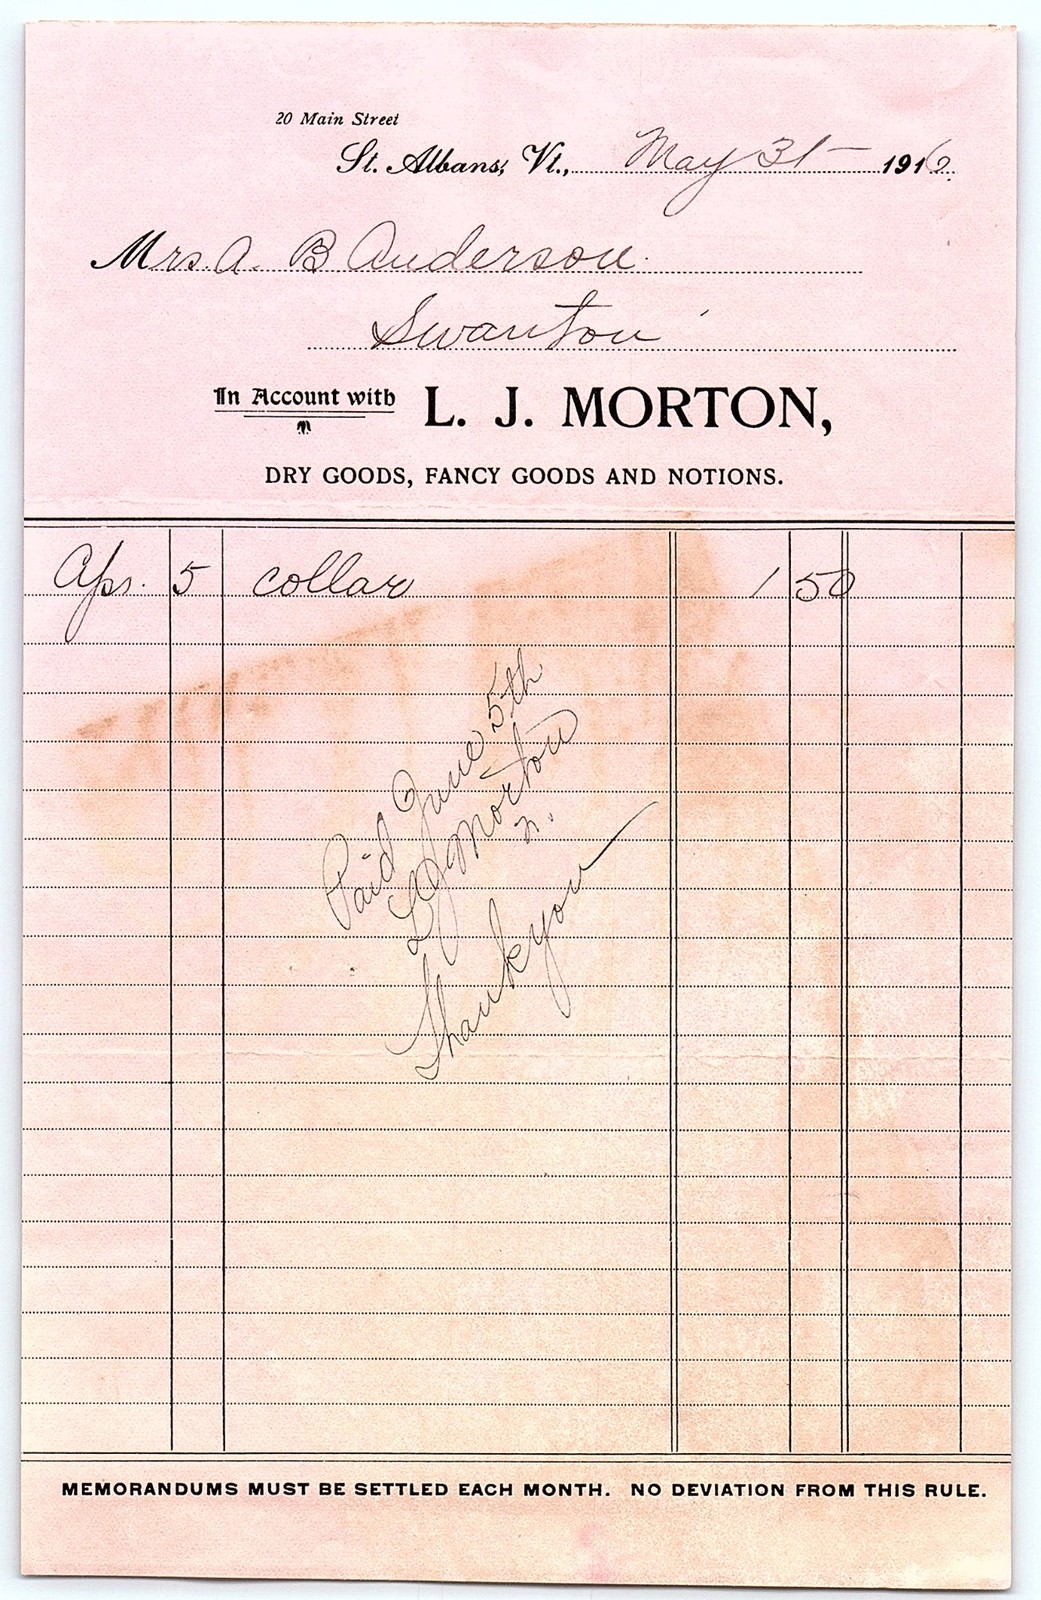 20 Main Street
St. Albans, Vt., May 31 — 1916.
Mrs. A. B Anderson.
Swanton
In Account with L. J. MORTON,
DRY GOODS, FANCY GOODS AND NOTIONS.
Apr. 5 collar 1 50
Paid June 5th
L J Morton
Thank you
MEMORANDUMS MUST BE SETTLED EACH MONTH. NO DEVIATION FROM THIS RULE.